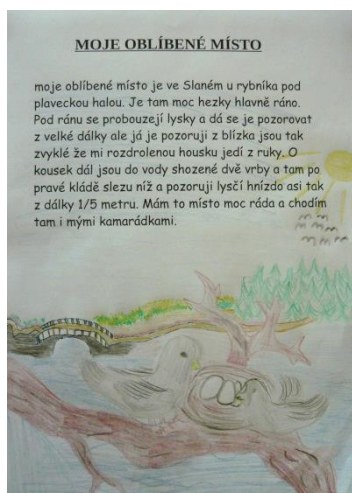 MOJE OBLÍBENÉ MÍSTO
moje oblíbené místo je ve Slaném u rybníka pod
plaveckou halou. Je tam moc hezky hlavně ráno.
Pod ránu se probouzejí lysky a dá se je pozorovat
z velké dálky ale já je pozoruji z blízka jsou tak
zvyklé že mi rozdrolenou housku jedí z ruky. O
kousek dál jsou do vody shozené dvě vrby a tam po
pravé kládě slezu níž a pozoruji lysčí hnízdo asi tak
z dálky 1/5 metru. Mám to místo moc ráda a chodím
tam i mými kamarádkami.